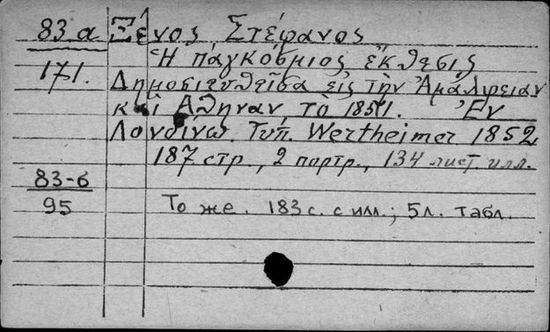 83 а Ξένος Στέφανος
Ἡ παγκόσμιος ἔκθεσις
171. Δημοσιευθεῖσα εἰς τὴν Ἀμάλθειαν
καὶ Ἀθηνᾶν τὸ 1851. Ἐν
Λονδίνῳ. Τυπ. Wertheimer 1852
187 стр., 2 портр., 134 лист. илл.
83-б
95 То же. 183 с. с илл.; 5 л. табл.